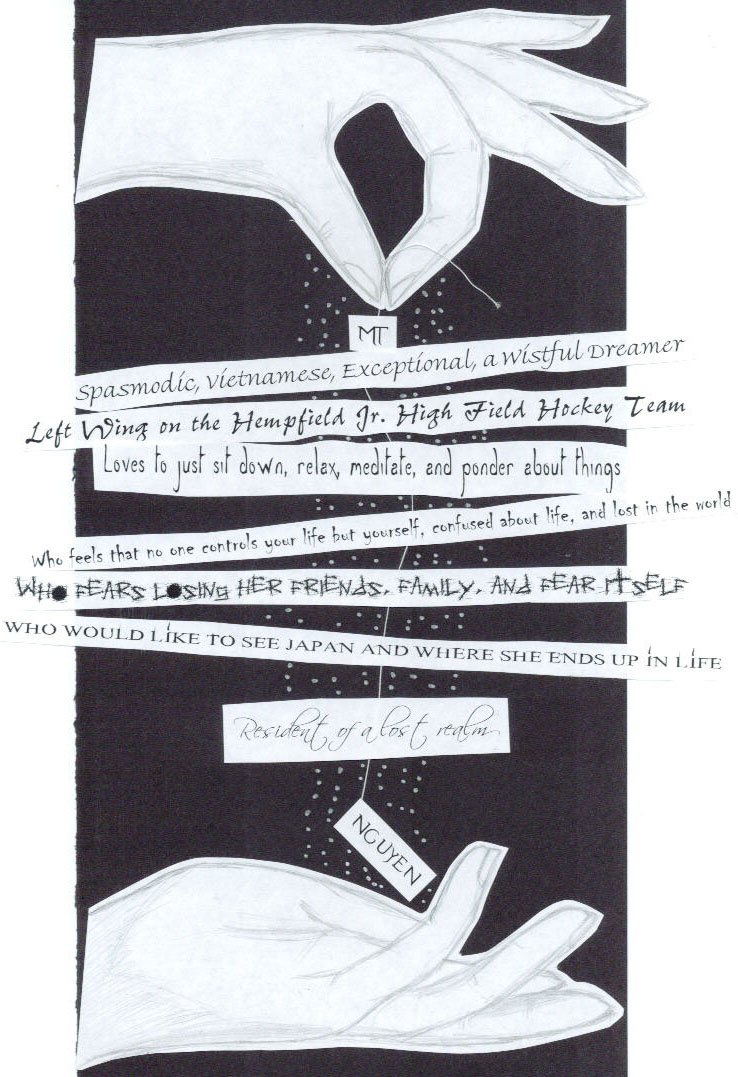 MT
Spasmodic, Vietnamese, Exceptional, a Wistful Dreamer
Left Wing on the Hempfield Jr. High Field Hockey Team
Loves to just sit down, relax, meditate, and ponder about things
Who feels that no one controls your life but yourself, confused about life, and lost in the world
WHO FEARS LOSING HER FRIENDS, FAMILY, AND FEAR ITSELF
WHO WOULD LiKE TO SEE JAPAN AND WHERE SHE ENDS UP iN LiFE
Resident of a lost realm
NGUYEN